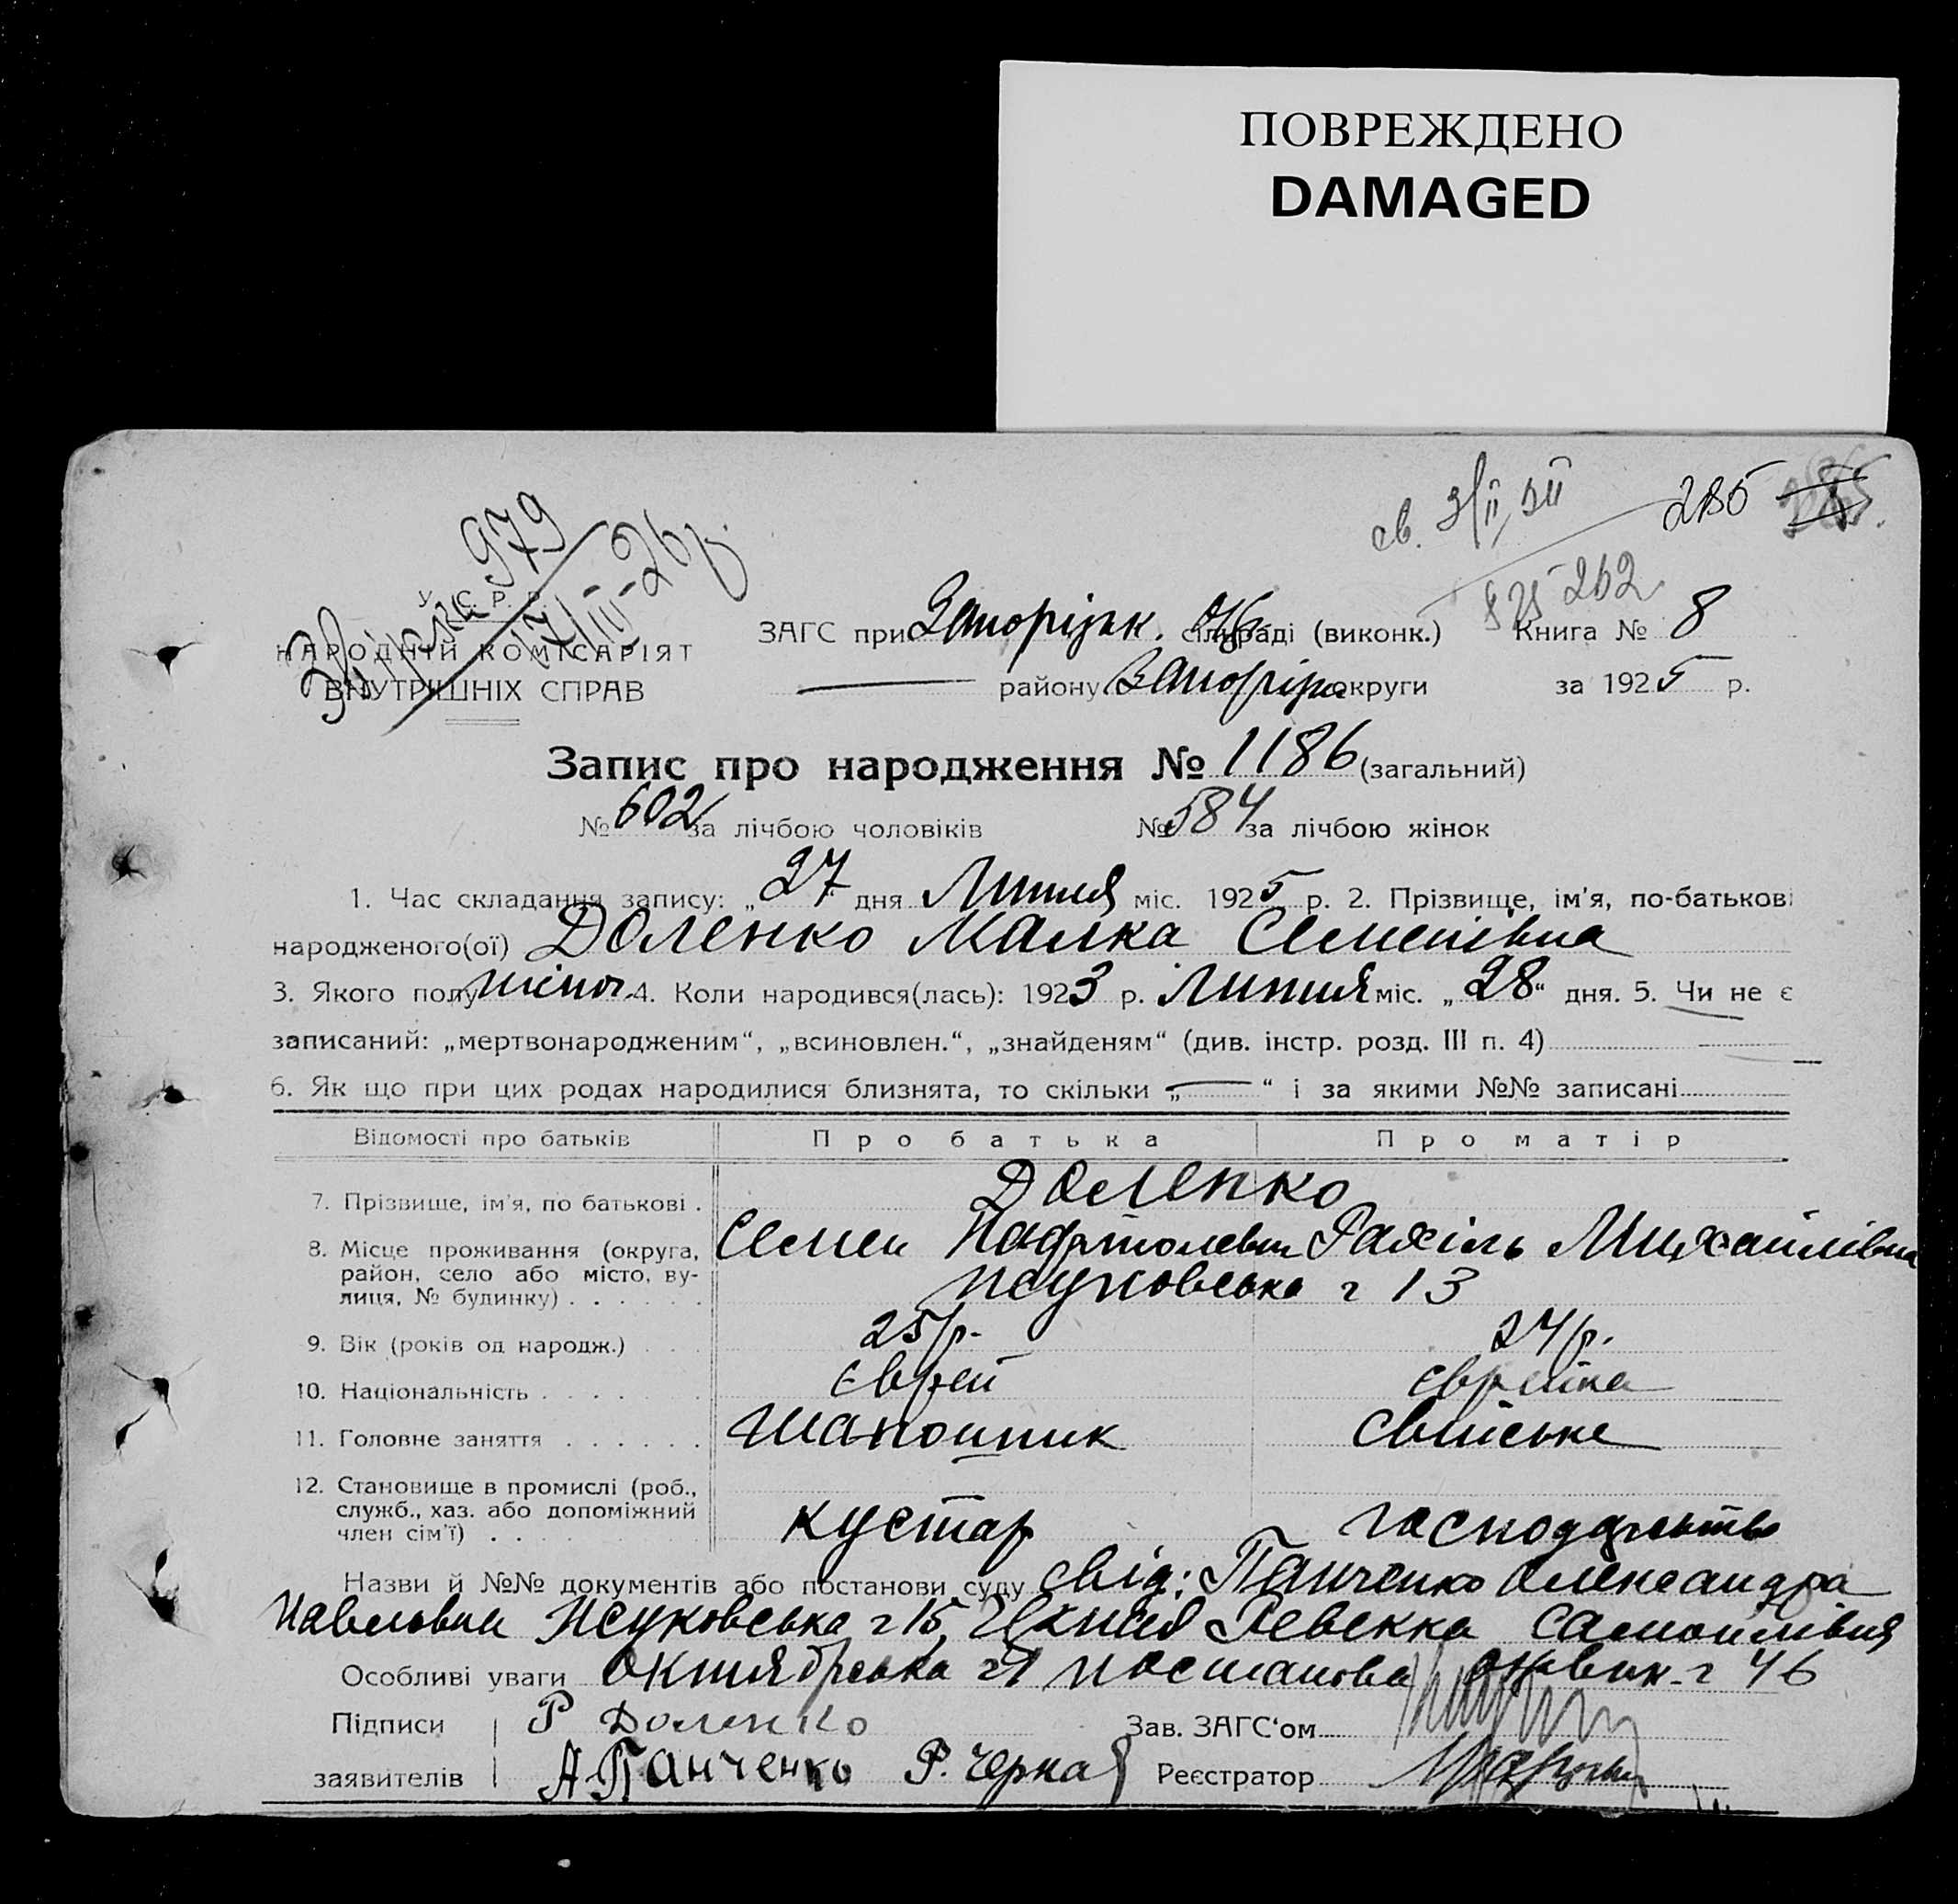 ПОВРЕЖДЕНО
DAMAGED
285
979
262
У. С. Р. Р.
НАРОДНІЙ КОМІСАРІЯТ
ВНУТРІШНІХ СПРАВ
ЗАГС при Запорізьк. Окр. сільраді (виконк.) Книга № 8
району Запоріж округи за 1925 р.
Запис про народження № 1186 (загальний)
№ 602 за лічбою чоловіків № 584 за лічбою жінок
1. Час складання запису: „27 дня Липня міс. 1925 р. 2. Прізвище, ім'я, по-батькові
народженого(ої) Доленко Малка Семенівна
3. Якого полу жіноч. 4. Коли народився(лась): 1923 р. Липня міс. „28“ дня. 5. Чи не є
записаний: „мертвонародженим“, „всиновлен.“, „знайденям“ (див. інстр. розд. III п. 4)
6. Як що при цих родах народилися близнята, то скільки „ “ і за якими №№ записані
Відомості про батьків Про батька Про матір
7. Прізвище, ім'я, по батькові . Доленко
Семен Нафтолевич Рахіль Михайлівна
8. Місце проживання (округа,
район, село або місто, ву-
лиця, № будинку) . . . . . . ч 13
9. Вік (років од народж.) . . . 25 р. 24 р.
10. Національність . . . . . . Єврей Єврейка
11. Головне заняття . . . . . . Шапошник Свійське
12. Становище в промислі (роб.,
служб., хаз. або допоміжний
член сім'ї) . . . . кустар господарство
Назви й №№ документів або постанови суду свід: Панченко Олександра
Павловна ч 15, Ревекка Самойлівна
Особливі уваги Октябрська постанова ч 46
Підписи Р Доленко Зав. ЗАГС'ом
заявителів А. Панченко Р. Черная Реєстратор